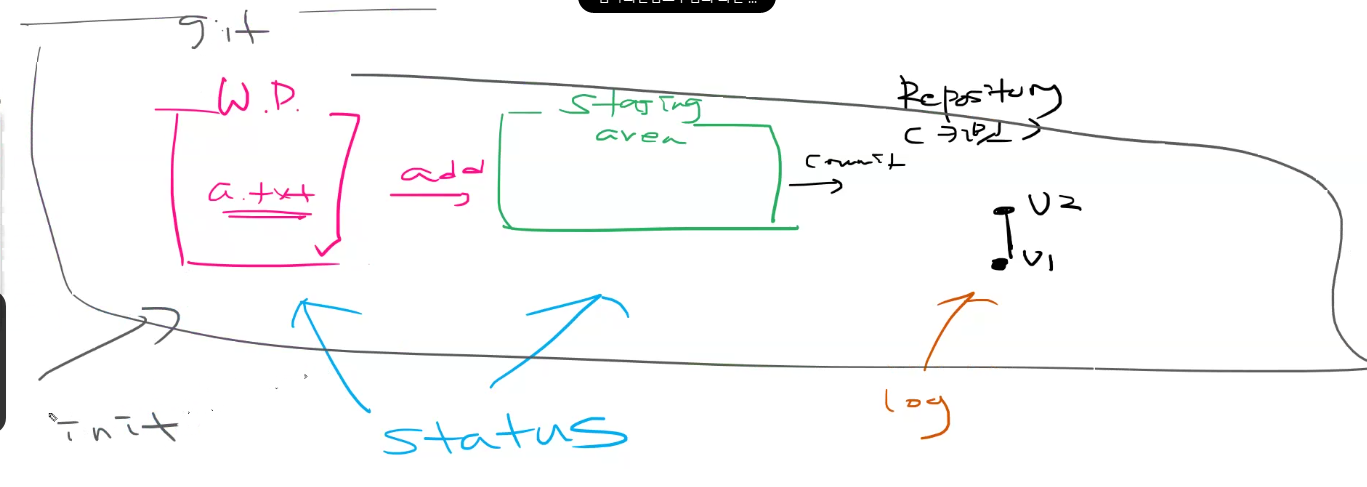 git
W.D.
a.txt
add
staging
area
commit
Repository
v2
v1
init
status
log